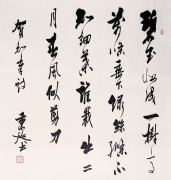 碧玉妝成一樹高
萬條垂下綠絲絛不
知細葉誰裁出二
月春風似剪刀
賀知章詩